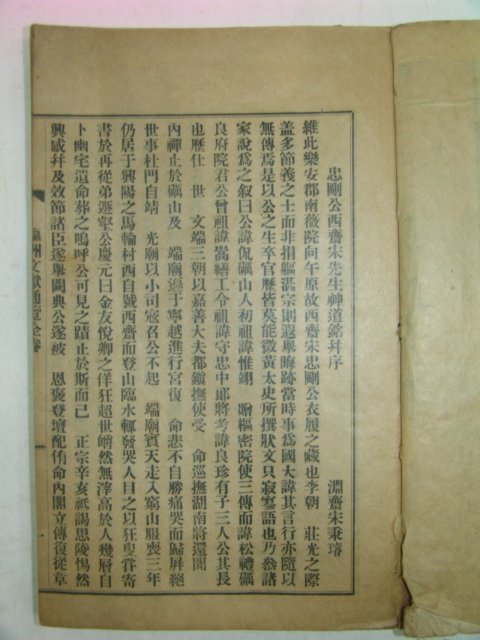 忠剛公西齋宋先生神道銘幷序
淵齋宋秉璿
維此樂安郡南薇院向午原故西齋宋忠剛公衣履之藏也李朝　莊光之際
盖多節義之士而非捐軀湛宗則遐擧晦跡當時事爲國大諱其言行亦隨以
無傳焉是以公之生卒官歷皆莫能徵黃太史所撰狀文只寂寥語也乃叅諸
家說爲之叙曰公諱侃礪山人初祖諱惟翊　貤樞密院使三傳而諱松禮礪
良府院君公曾祖諱　禧工令祖諱守忠中郞將考諱良珍有子三人公其長
也歷仕　世　文端三朝以嘉善大夫都鎭撫使受　命巡撫湖南將還聞
內禪止於礪山及　端廟遜于寧越進行宮復　命悲不自勝痛哭而歸屛絕
世事杜門自靖　光廟以小司寇召公不起　端廟賓天走入窮山服喪三年
仍居于興陽之馬輪村西自號西齋而登山臨水輒發哭人目之以狂叟甞寄
書於再從弟遯壑公慶元曰金友悅卿之佯狂超世皭然無滓高於人幾層自
卜幽宅遺命葬之嗚呼公可見之蹟止於斯而已　正宗辛亥祗謁思陵惕然
興感幷及效節諸臣遂擧闕典公遂被　恩褒登壇配侑命內閣立傳復從章
州文獻通　全卷
一